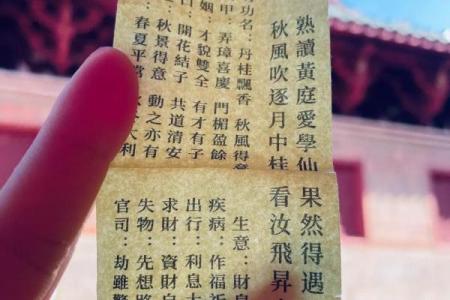 熟讀黃庭愛學仙
秋風吹逐月中桂
功名：丹桂飄香 秋風得意
甲：弄璋喜慶 門楣盈餘
姻：才貌雙全 有才有子
：開花結子 共道清安
：秋景得意 動之亦有
：春夏平常 大利
果然得遇
看汝飛昇
生意：財息
疾病：作福祈
出行：利息
求財：資財自
失物：先想
官司：劫雖